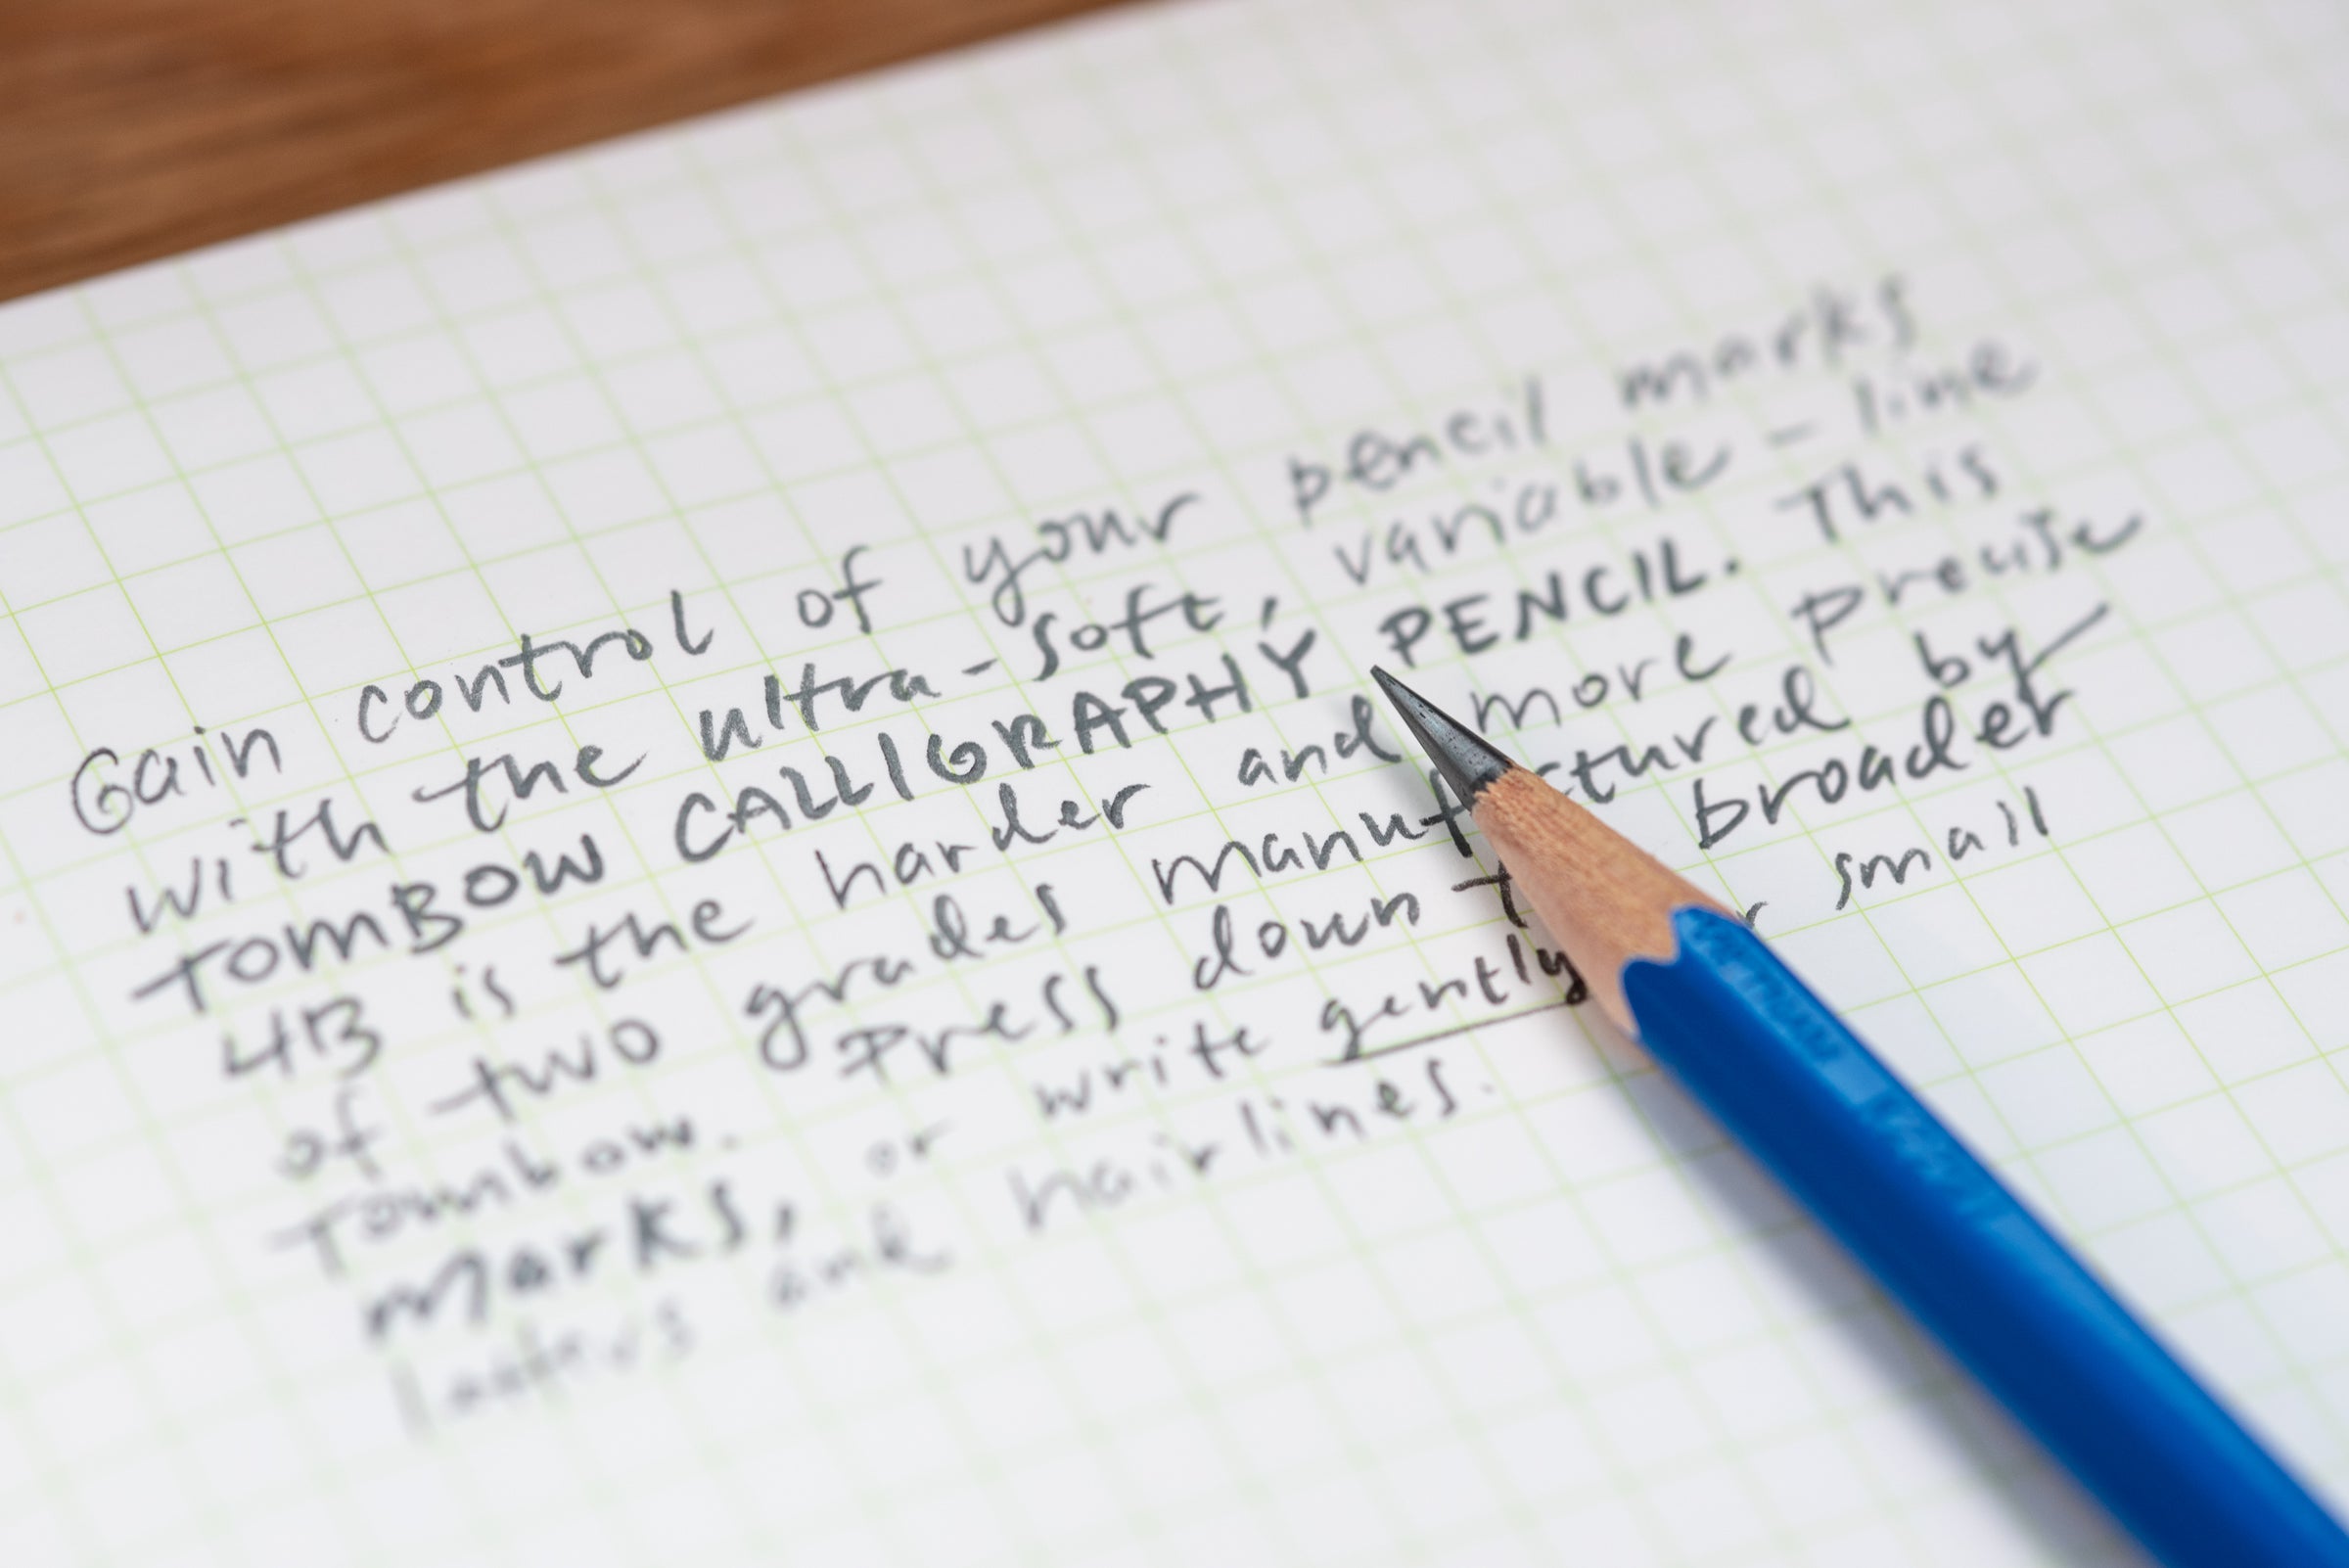 Gain control of your pencil marks
with the ultra-soft, variable-line
TOMBOW CALLIGRAPHY PENCIL. This
4B is the harder and more precise
of two grades manufactured by
Tombow. Press down broader
marks, or write gently small
letters and hairlines.